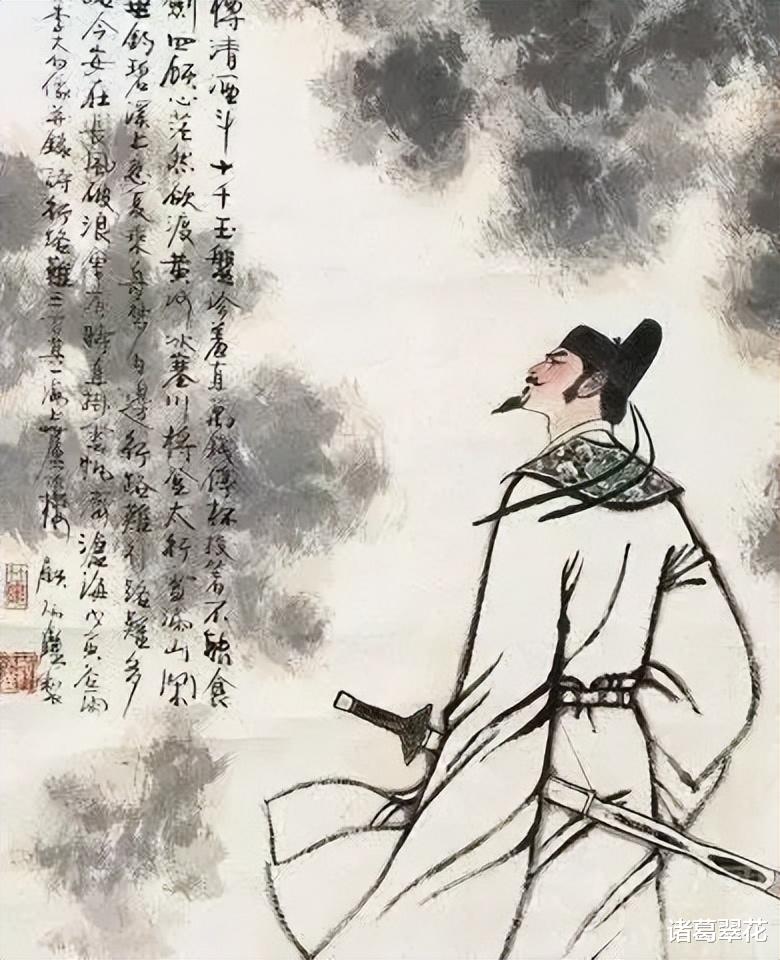 樽清酒斗十千玉盤珍羞直萬錢停杯投箸不能食
劍四顧心茫然欲渡黃河冰塞川將登太行雪滿山閑
垂釣碧溪上忽復乘舟夢日邊行路難行路難多
歧今安在長風破浪會有時直掛雲帆濟滄海戊寅
李太白像并錄詩行路難三首其一海上 顧炳鑫製
诸葛翠花